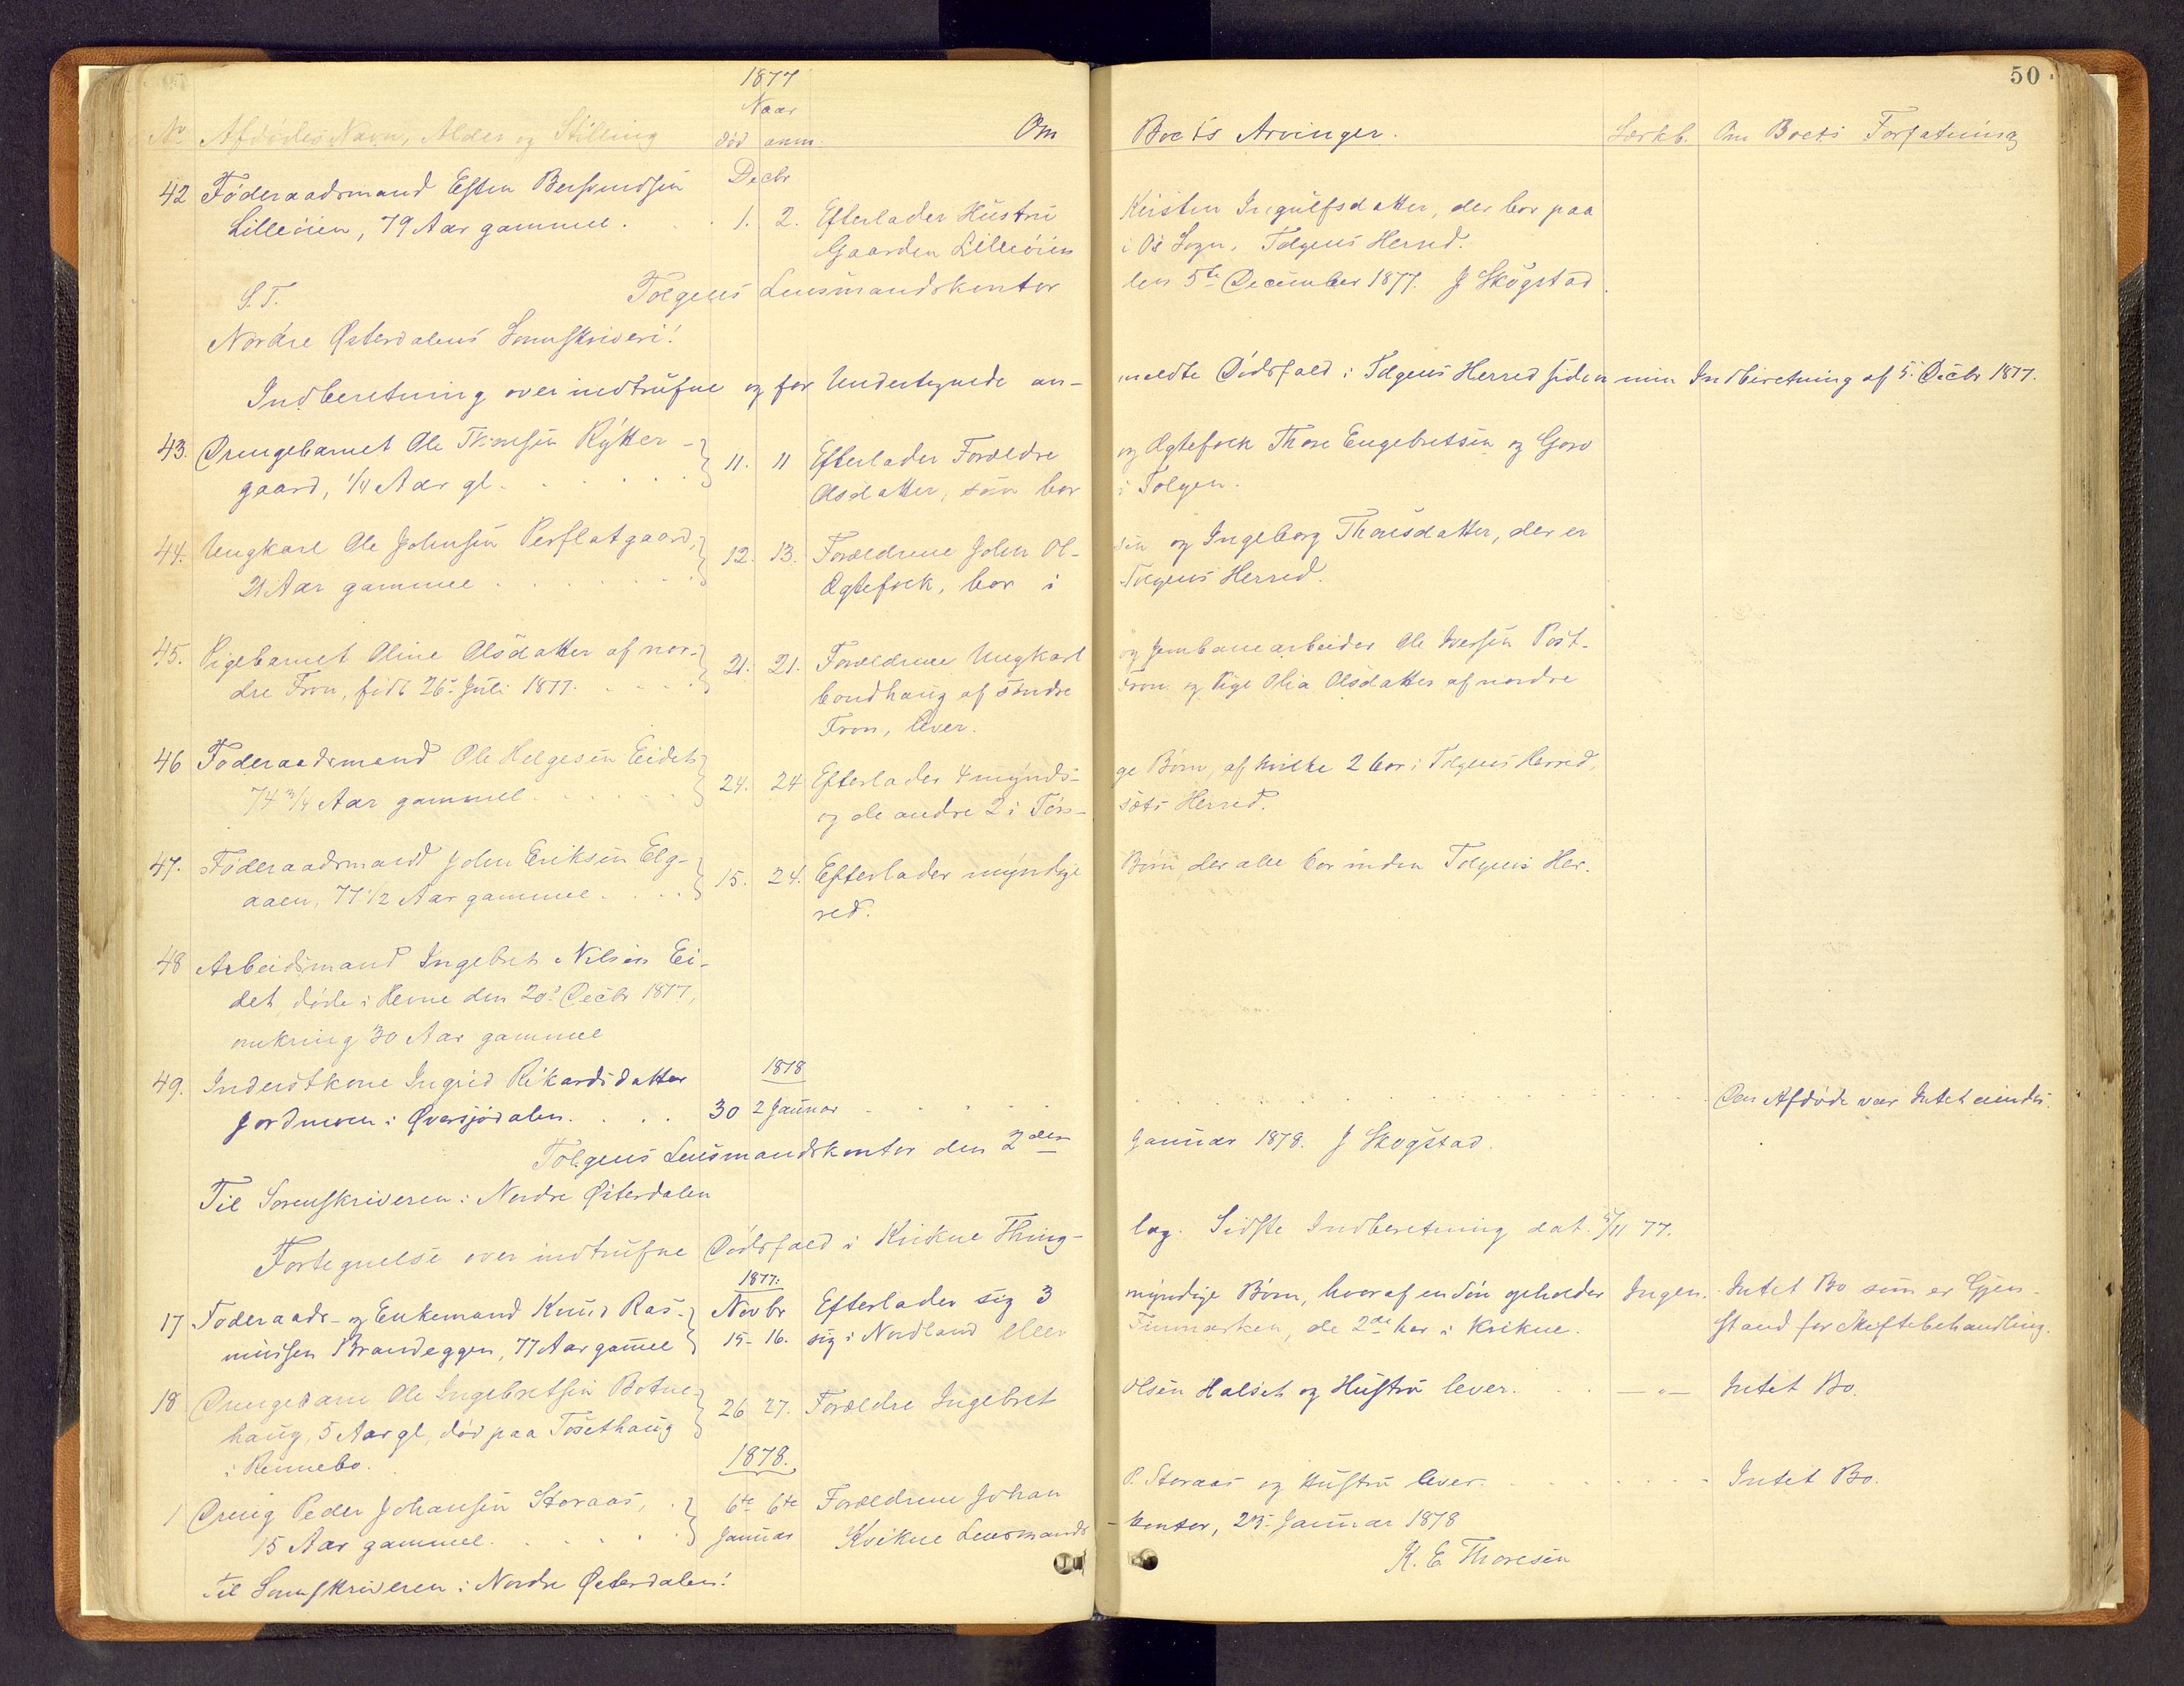 50
1877
Naar
No Afdødes Navn, Alder og Stilling død anm. Om Boets Arvinger. Særkb. Om Boets Forfatning
Decbr
42 Føderaadsmand Esten Bersvendsen
Lilleøien, 79 Aar gammel. 1. 2. Efterlader Hustru Kirsten Ingulfsdatter, der bor paa
Gaarden Lilleøien i Os Sogn, Tolgens Herred.
S.T. Tolgens Lensmandskontor den 5te December 1877. J Skogstad.
Nordre Østerdalens Sorenskriveri!
Indberetning over indtrufne og for Undertegnede anmeldte Dødsfald i Tolgens Herred siden min Indberetning af 5. Decbr 1877.
43. Drengebarnet Ole Thoresen Rytter-
gaard, 1/4 Aar gl. 11. 11 Efterlader Forældre og Ægtefolk Thore Engebretsen og Goro
Olsdatter, som bor i Tolgen.
44. Ungkarl Ole Johnsen Persflatgaard,
21 Aar gammel 12. 13. Forældrene John Ol-sen og Ingeborg Thoresdatter, der er
Ægtefolk, bor i Tolgens Herred.
45. Pigebarnet Oline Olsdatter af nor-
dre Fron, født 26. Juli 1877. 21. 21. Forældrene Ungkarl og Jernbanearbeider Ole Iversen Post-
bondhaug af søndre Fron og Pige Olia Olsdatter af nordre
Fron, lever.
46 Føderaadsmand Ole Helgesen Eidet
74 3/4 Aar gammel 24. 24 Efterlader 4 myndi-ge Børn, af hvilke 2 bor i Tolgens Herred,
og de andre 2 i Tøn-sets Herred.
47. Føderaadsmand John Eriksen Elg-
aaen, 77 1/2 Aar gammel. 15. 24. Efterlader myndige Børn, der alle bor inden Tolgens Her-
red.
48 Arbeidsmand Ingebret Nilsen Ei-
det, døde i Hevne den 20. Decbr 1877,
omkring 30 Aar gammel
1878
49. Inderstkone Ingrid Rikardsdatter
Jordmoen i Øversjødalen. 30 2 Januar Den Afdøde var Intet eiendes.
Tolgens Lensmandskontor den 2den Januar 1878. J Skogstad.
Til Sorenskriveren i Nordre Østerdalen
Fortegnelse over indtrufne Dødsfald i Kvikne Thing-lag. Sidste Indberetning dat. 5/11 77.
1877.
17 Føderaads- og Enkemand Knud Ras- Novbr Efterlader sig 3 myndige Børn, hvoraf en Søn opholder Ingen. Intet Bo som er Gjen-
mussen Brandeggen, 77 Aar gammel 15- 16. sig i Nordland eller Finmarken, de 2de bor i Kvikne. stand for Skiftebehandling.
18 Drengebarn Ole Ingebretsen Botne-
haug, 5 Aar gl, død paa Tosethaug 26 27. Forældre Ingebret Olsen Halset og Hustru lever. — " — Intet Bo.
i Rennebo.
1878.
1 Dreng Peder Johansen Storaas, 6te 6te Forældrene Johan P. Storaas og Hustru lever. Intet Bo.
15 Aar gammel. Januar Kvikne Lensmands-kontor, 25. Januar 1878
K. E. Thoresen
Til Sorenskriveren i Nordre Østerdalen!